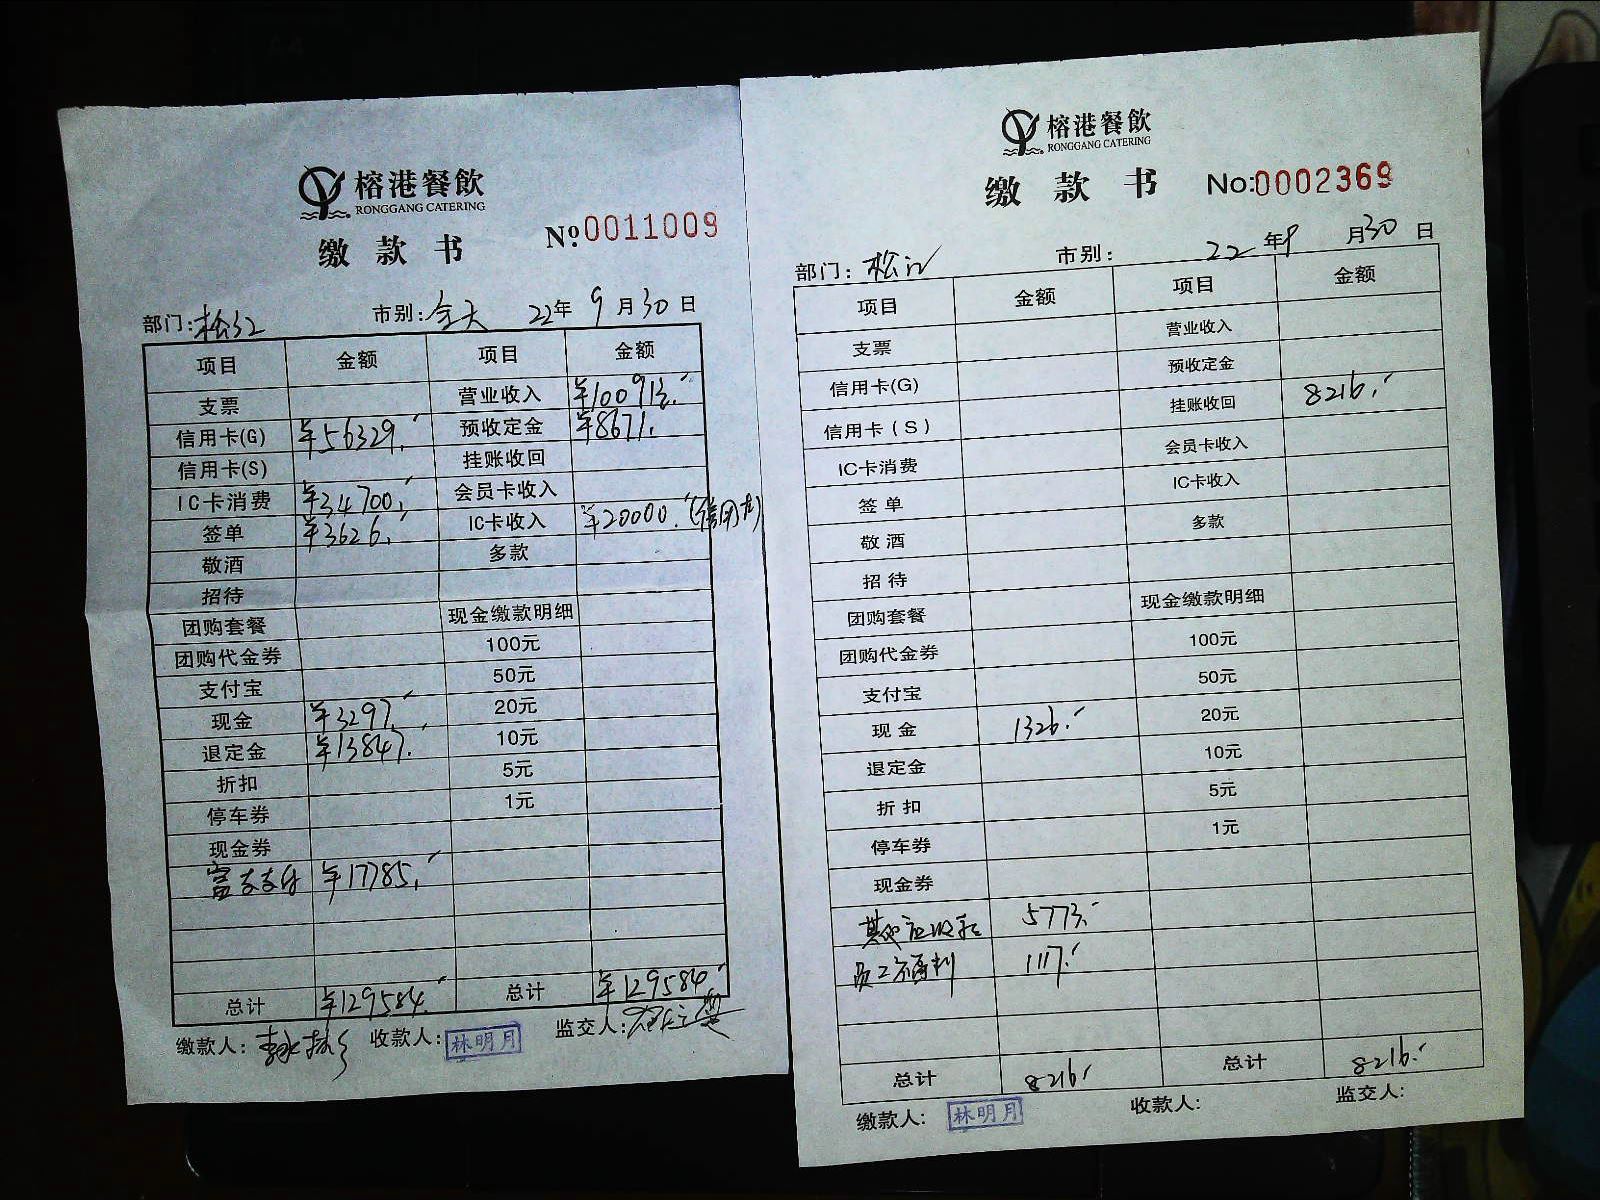 榕港餐飲
RONGGANG CATERING
缴款书 №0011009
部门:松江 市别:全天 22年9月30日
项目 金额 项目 金额
支票 营业收入 ¥100913.-
信用卡(G) ¥56329.- 预收定金 ¥8671.-
信用卡(S) 挂账收回
IC卡消费 ¥34700.- 会员卡收入
签单 ¥3626.- IC卡收入 ¥20000.-(信用卡)
敬酒 多款
招待
团购套餐 现金缴款明细
团购代金券 100元
支付宝 50元
现金 ¥3297.- 20元
退定金 ¥13847.- 10元
折扣 5元
停车券 1元
现金券
富友支付 ¥17785.-
总计 ¥129584.- 总计 ¥129584.-
缴款人: 收款人:林明月 监交人:
榕港餐飲
RONGGANG CATERING
缴款书 No:0002369
部门:松江 市别: 22年9月30日
项目 金额 项目 金额
支票 营业收入
信用卡(G) 预收定金
信用卡(S) 挂账收回 8216.-
IC卡消费 会员卡收入
签单 IC卡收入
敬酒 多款
招待
团购套餐 现金缴款明细
团购代金券 100元
支付宝 50元
现金 1326.- 20元
退定金 10元
折扣 5元
停车券 1元
现金券
其他应收款 5773.-
员工福利 1117.-
总计 8216.- 总计 8216.-
缴款人:林明月 收款人: 监交人: